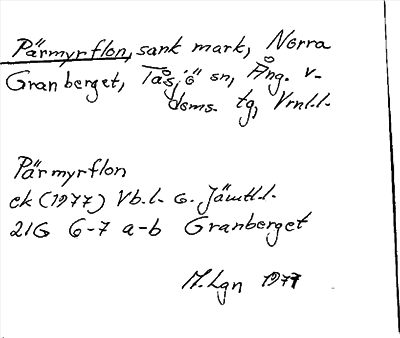 Pärmyrflon, sank mark, Norra
Granberget, Tåsjö sn, Ång. v-
doms. tg, Vrnl.l.
Pärmyrflon
ek (1977) Vb.l. o. Jämtl.l.
21G 6-7 a-b Granberget
M.Lgn 1977